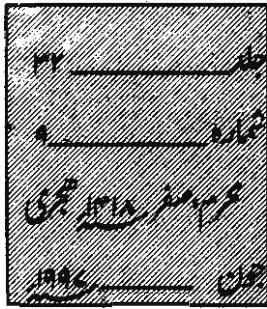 جلد ______ ۳۲
شماره ______ ۹
محرم، صفر ۱۴۱۸ ہجری
جون ______ ۱۹۹۷